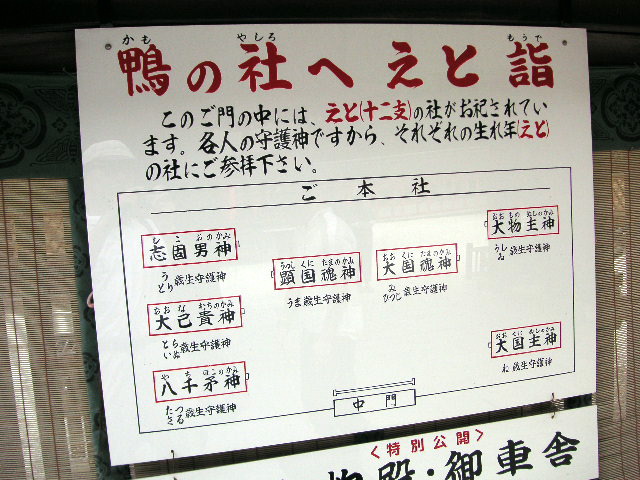 かも やしろ もうで
鴨の社へえと詣
このご門の中には、えと(十二支)の社がお祀されてい
ます。各人の守護神ですから、それぞれの生れ年(えと)
の社にご参拝下さい。
ご本社
しこおのかみ
志固男神
う とり 歳生守護神
おおなむちのかみ
大己貴神
とら いぬ 歳生守護神
やちのこのかみ
八千矛神
たつ さる 歳生守護神
うつしくにたまのかみ
顕国魂神
うま歳生守護神
おおくにたまのかみ
大国魂神
み ひつじ 歳生守護神
おおものぬしのかみ
大物主神
うし ゐ 歳生守護神
おおくにぬしのかみ
大国主神
ね 歳生守護神
中門
<特別公開>
殿・御車舎